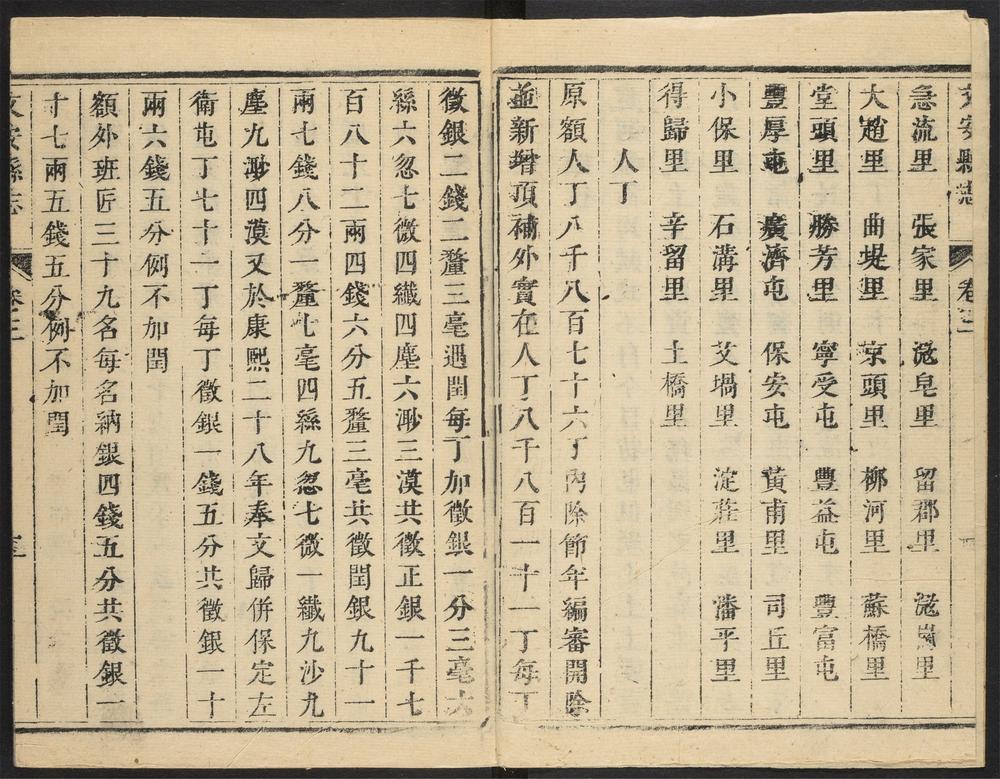 文安縣志 卷之二
急流里 張家里 滗皂里 留郡里 滗崗里
大趙里 曲堤里 京頭里 柳河里 蘇橋里
堂頭里 勝芳里 寧受屯 豐益屯 豐富屯
豐厚屯 廣濟屯 保安屯 黃甫里 司丘里
小保里 石溝里 艾塌里 淀莊里 潘平里
得歸里 辛留里 土橋里
人丁
原額人丁八千八百七十六丁內除節年編審開除
並新增頂補外實在人丁八千八百一十一丁每丁
徵銀二錢二釐三毫遇閏每丁加徵銀一分三毫六
絲六忽七微四纖四塵六渺三漠共徵正銀一千七
百八十二兩四錢六分五釐三毫共徵閏銀九十一
兩七錢八分一釐七毫四絲九忽七微一纖九沙九
塵九渺四漠又於康熙二十八年奉文歸併保定左
衛屯丁七十一丁每丁徵銀一錢五分共徵銀一十
兩六錢五分例不加閏
額外班匠三十九名每名納銀四錢五分共徵銀一
十七兩五錢五分例不加閏
文安縣志 卷之二